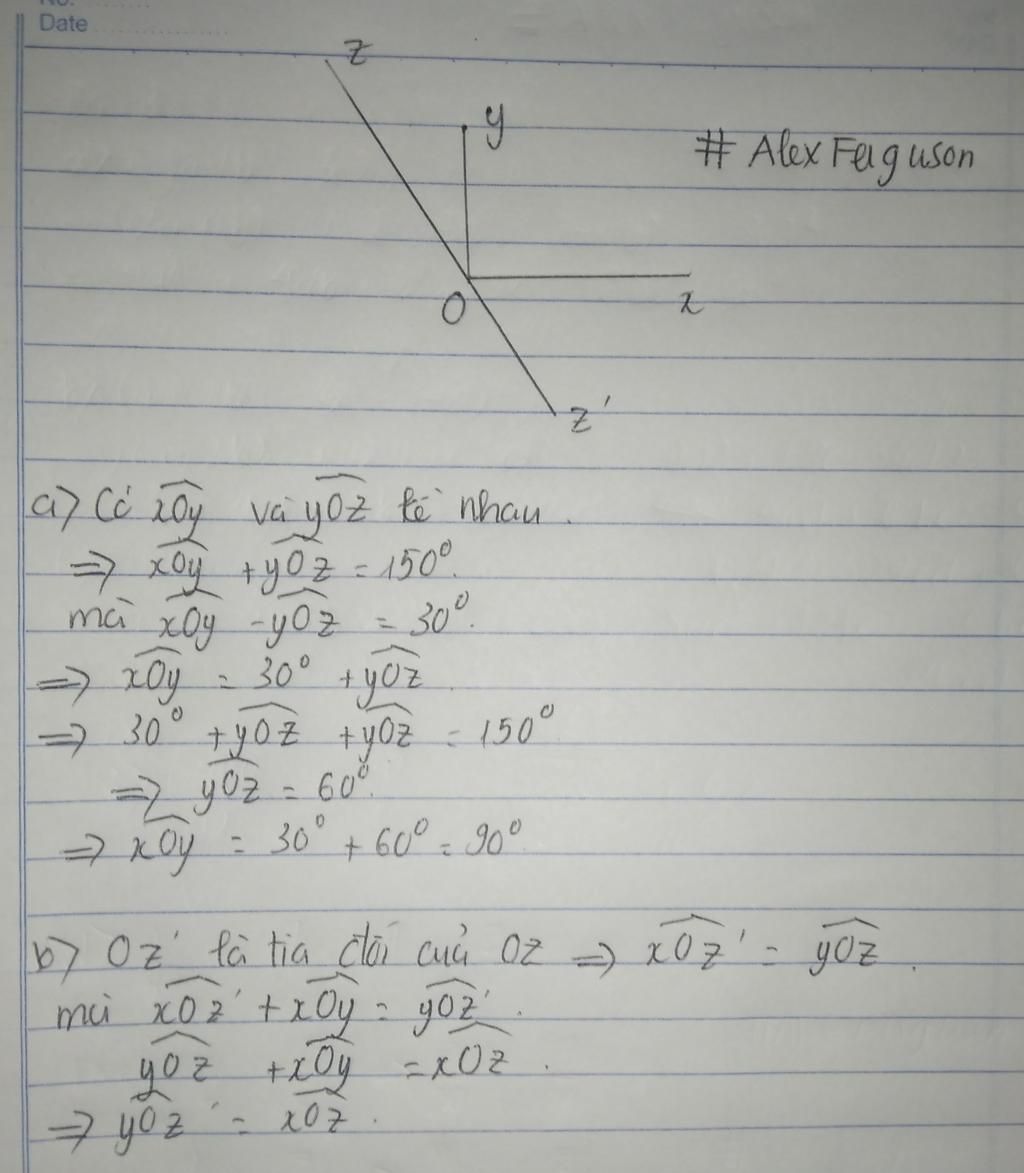 No.
Date
z
y
# Alex Ferguson
O
x
z'
a) Có xOy và yOz kề nhau.
=> xOy + yOz = 150°.
mà xOy - yOz = 30°.
=> xOy = 30° + yOz.
=> 30° + yOz + yOz = 150°
=> yOz = 60°.
=> xOy = 30° + 60° = 90°
b) Oz' là tia đối của Oz => xOz' = yOz.
mà xOz' + xOy = yOz'.
yOz + xOy = xOz.
=> yOz' = xOz.